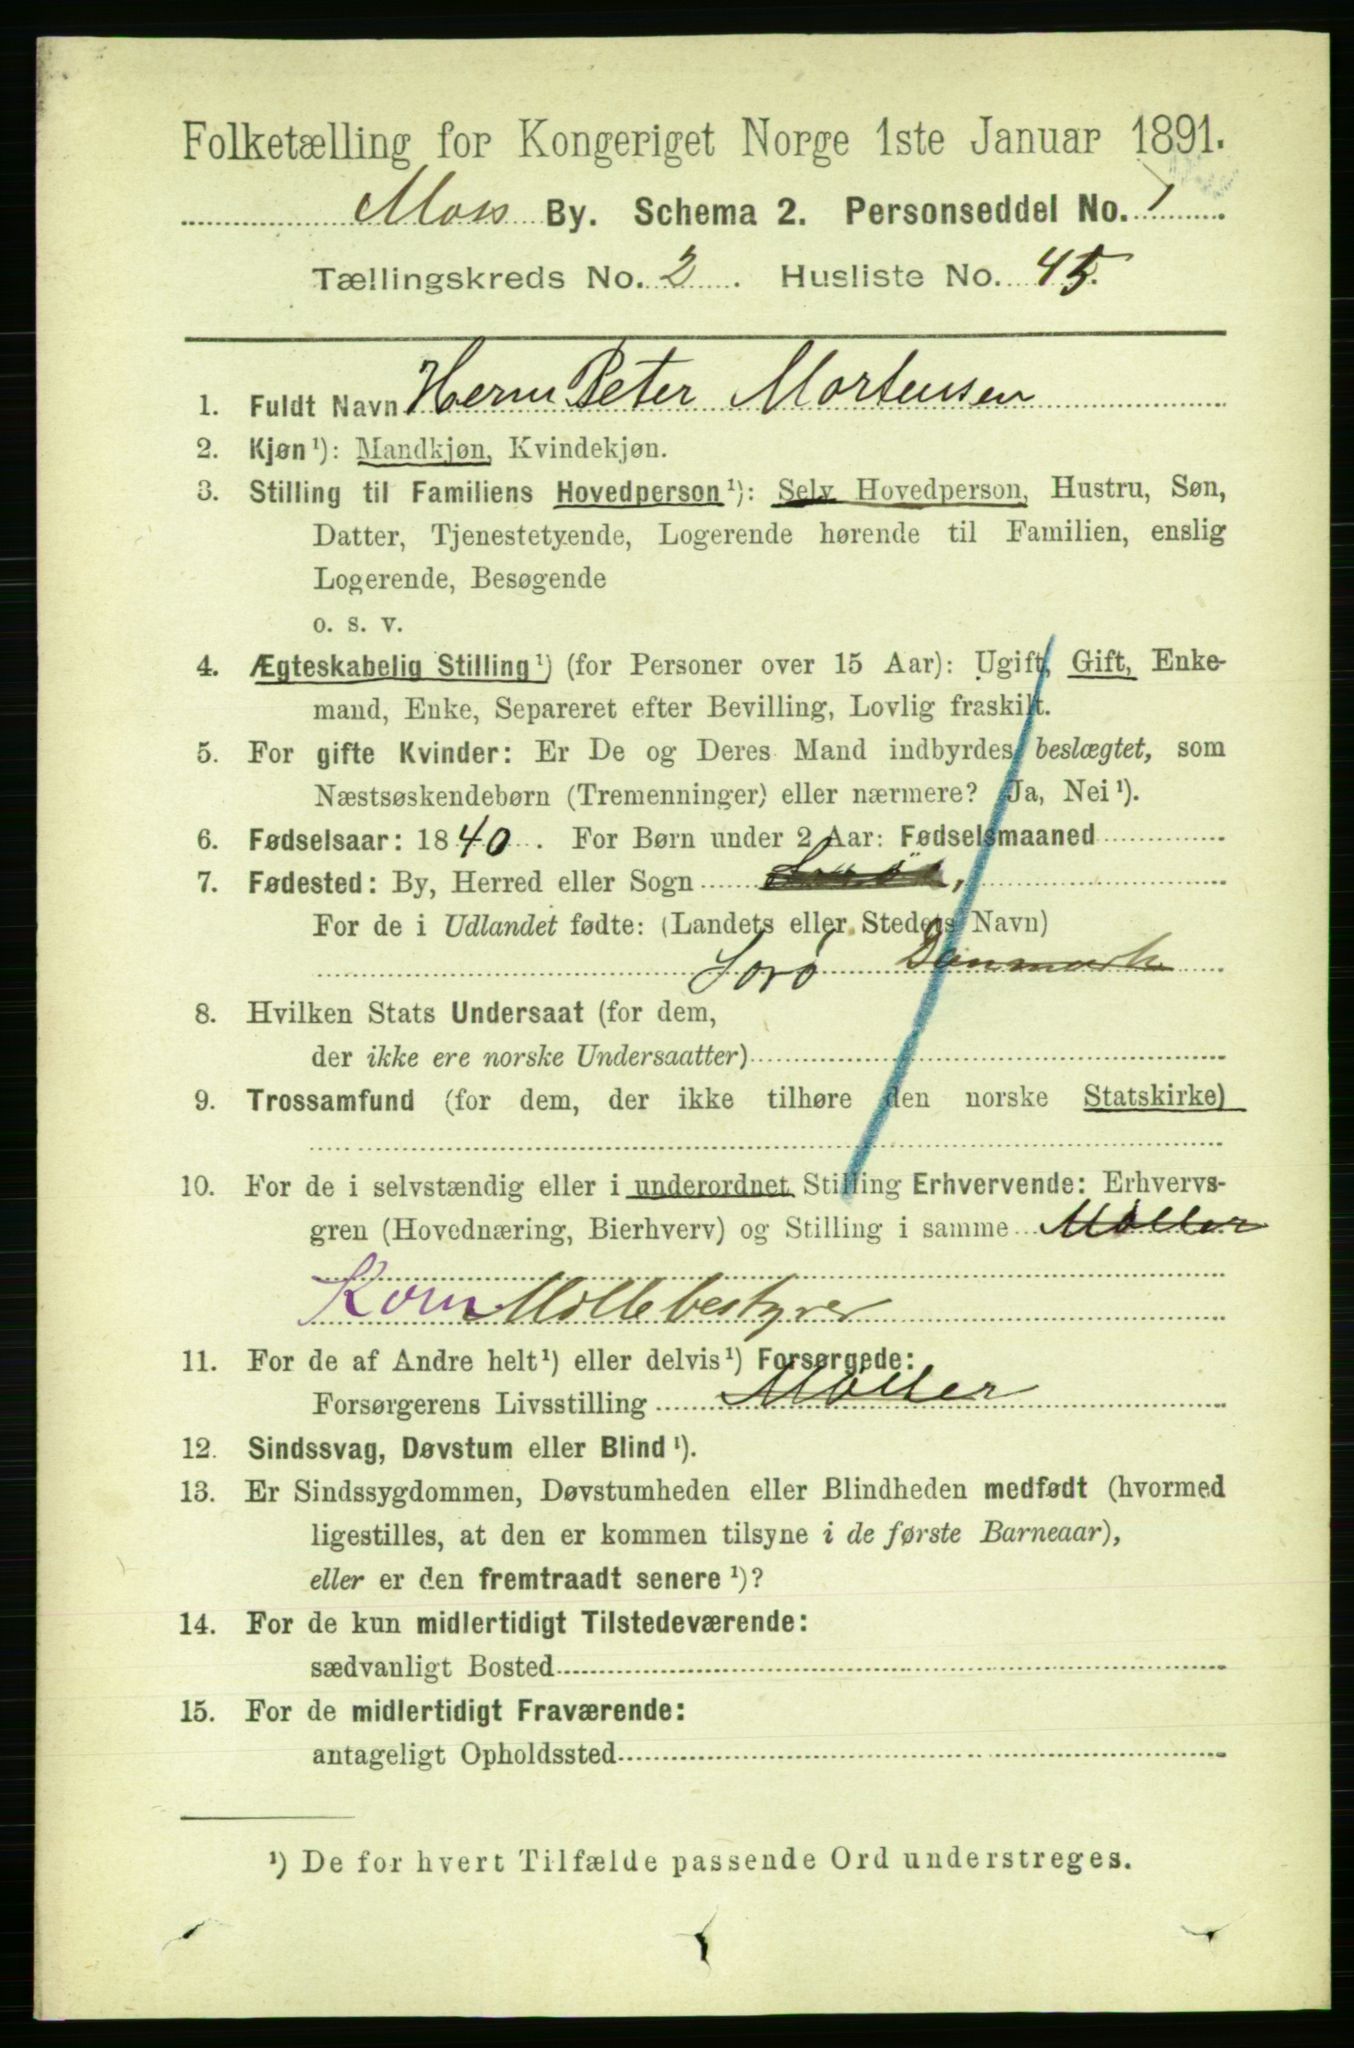 Folketælling for Kongeriget Norge 1ste Januar 1891.
Moss By. Schema 2. Personseddel No. 1
Tællingskreds No. 2. Husliste No. 45.
1. Fuldt Navn Herm Peter Mortensen
2. Kjøn¹): Mandkjøn, Kvindekjøn.
3. Stilling til Familiens Hovedperson¹): Selv Hovedperson, Hustru, Søn,
Datter, Tjenestetyende, Logerende hørende til Familien, enslig
Logerende, Besøgende
o. s. v.
4. Ægteskabelig Stilling¹) (for Personer over 15 Aar): Ugift, Gift, Enke-
mand, Enke, Separeret efter Bevilling, Lovlig fraskilt.
5. For gifte Kvinder: Er De og Deres Mand indbyrdes beslægtet, som
Næstsøskendebørn (Tremenninger) eller nærmere? Ja, Nei¹).
6. Fødselsaar: 1840. For Børn under 2 Aar: Fødselsmaaned
7. Fødested: By, Herred eller Sogn
For de i Udlandet fødte: (Landets eller Stedets Navn)
Sorö Danmark
8. Hvilken Stats Undersaat (for dem,
der ikke ere norske Undersaatter)
9. Trossamfund (for dem, der ikke tilhøre den norske Statskirke)
10. For de i selvstændig eller i underordnet Stilling Erhvervende: Erhvervs-
gren (Hovednæring, Bierhverv) og Stilling i samme Möller
Korn Möllebestyrer
11. For de af Andre helt¹) eller delvis¹) Forsørgede:
Forsørgerens Livsstilling Möller
12. Sindssvag, Døvstum eller Blind¹).
13. Er Sindssygdommen, Døvstumheden eller Blindheden medfødt (hvormed
ligestilles, at den er kommen tilsyne i de første Barneaar),
eller er den fremtraadt senere¹)?
14. For de kun midlertidigt Tilstedeværende:
sædvanligt Bosted
15. For de midlertidigt Fraværende:
antageligt Opholdssted
¹) De for hvert Tilfælde passende Ord understreges.